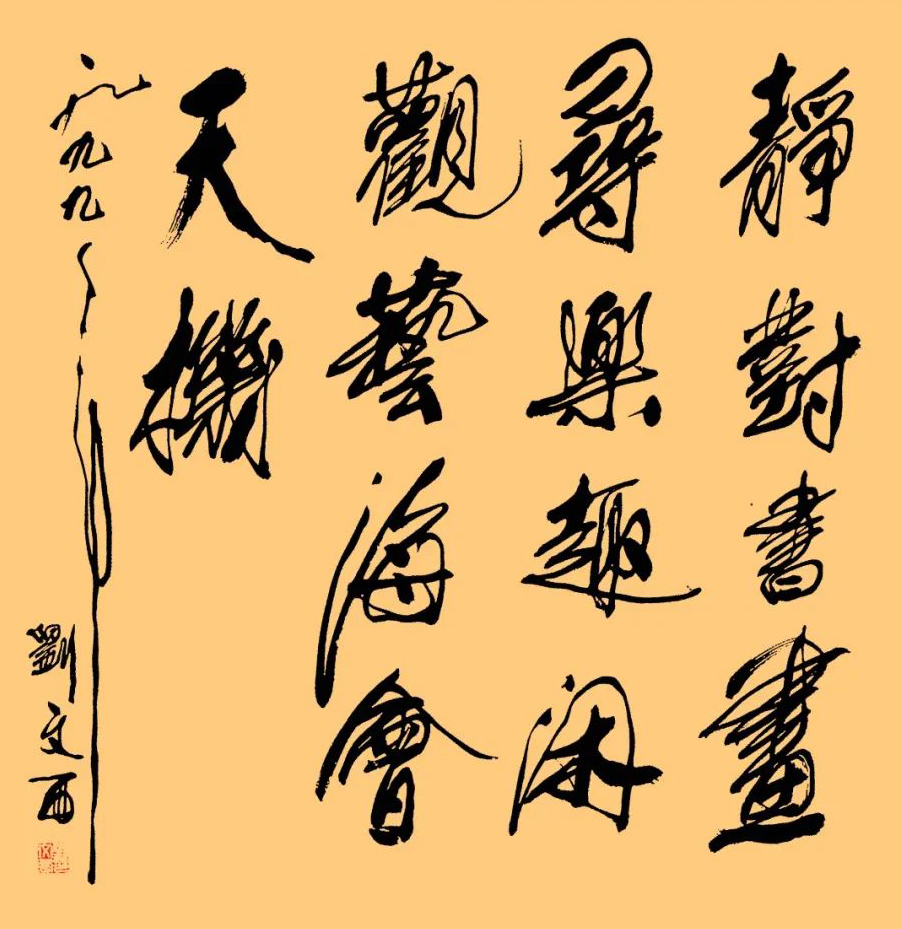 靜對書畫
尋樂趣閑
觀藝海會
天機
一九九九年
劉文西